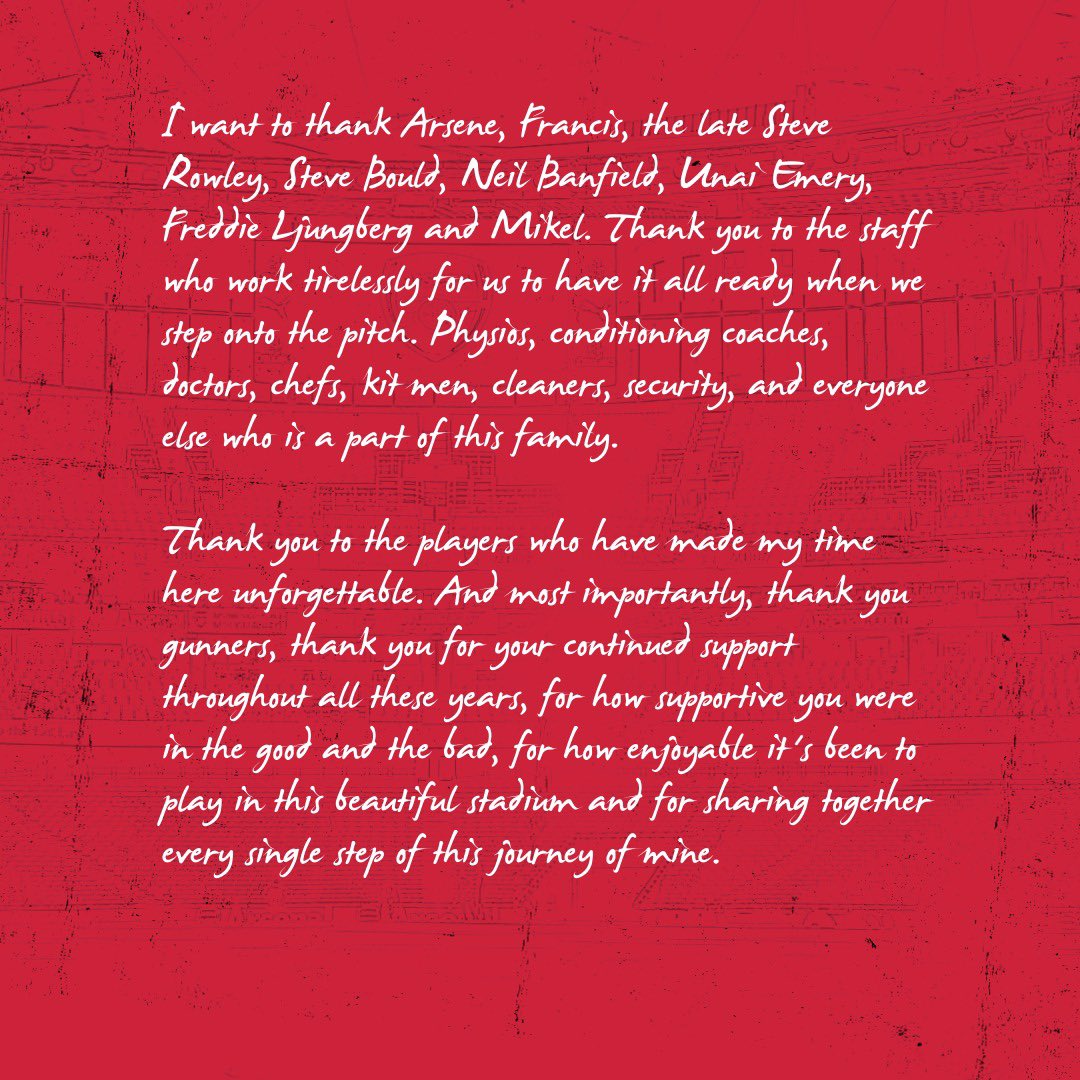 I want to thank Arsene, Francis, the late Steve
Rowley, Steve Bould, Neil Banfield, Unai Emery,
Freddie Ljungberg and Mikel. Thank you to the staff
who work tirelessly for us to have it all ready when we
step onto the pitch. Physios, conditioning coaches,
doctors, chefs, kit men, cleaners, security, and everyone
else who is a part of this family.
Thank you to the players who have made my time
here unforgettable. And most importantly, thank you
gunners, thank you for your continued support
throughout all these years, for how supportive you were
in the good and the bad, for how enjoyable it's been to
play in this beautiful stadium and for sharing together
every single step of this journey of mine.